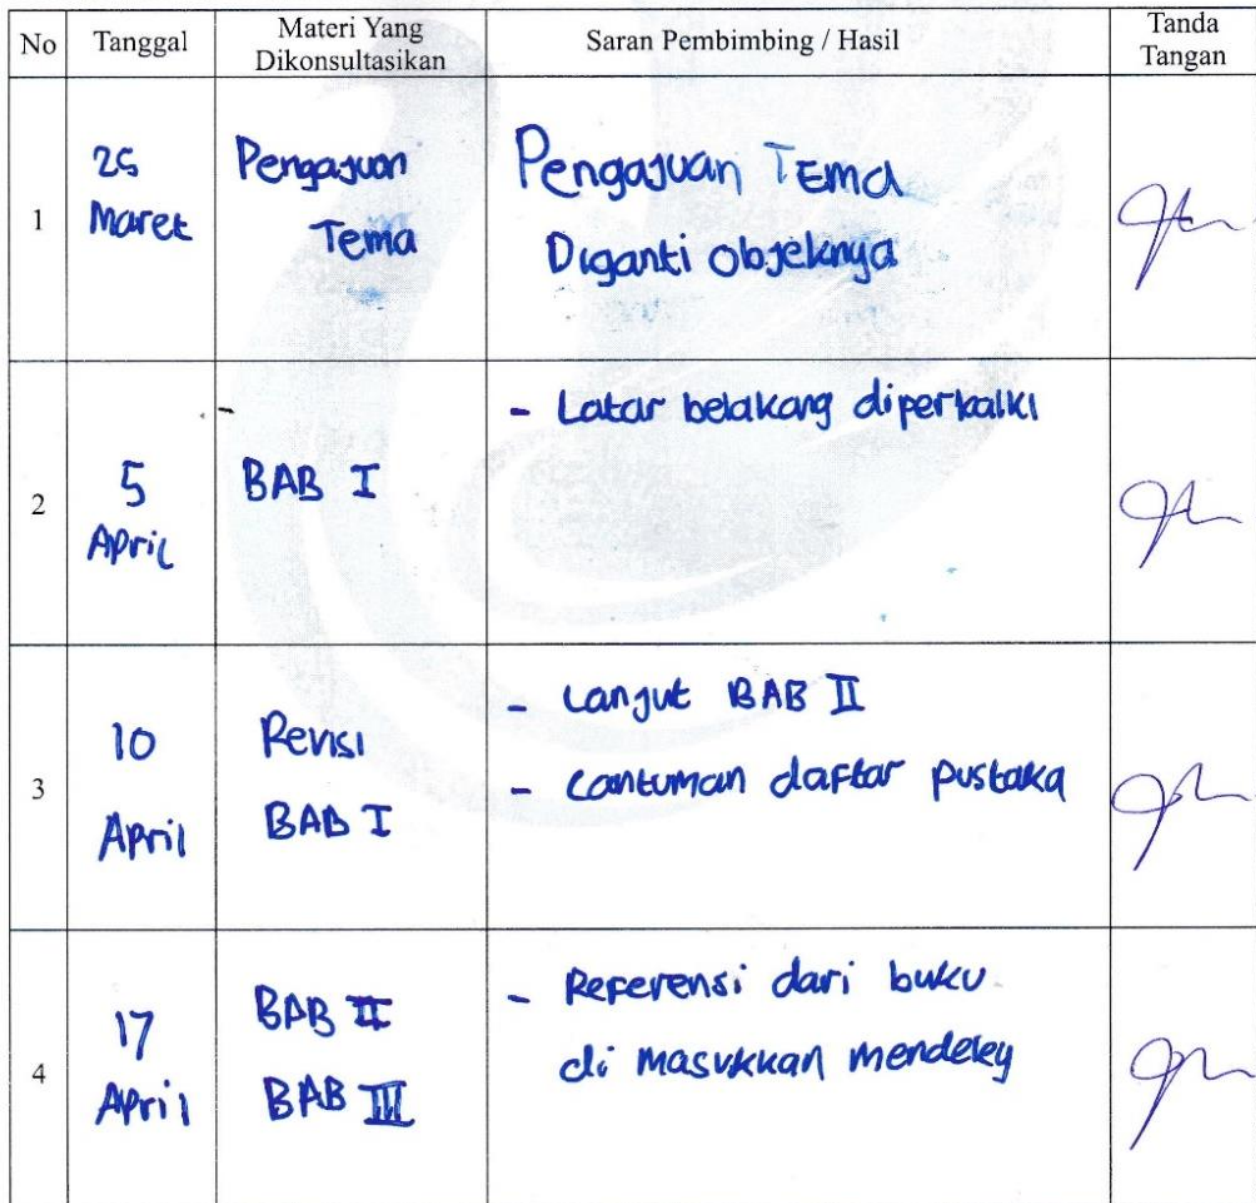 No Tanggal Materi Yang Dikonsultasikan Saran Pembimbing / Hasil Tanda Tangan
1
25
Maret
Pengajuan
Tema
Pengajuan Tema
Diganti objeknya
2
5
April
-
BAB I
- Latar belakang diperbaiki
3
10
April
Revisi
BAB I
- Lanjut BAB II
- Cantuman daftar pustaka
4
17
April
BAB II
BAB III
- Referensi dari buku
di masukkan mendeley